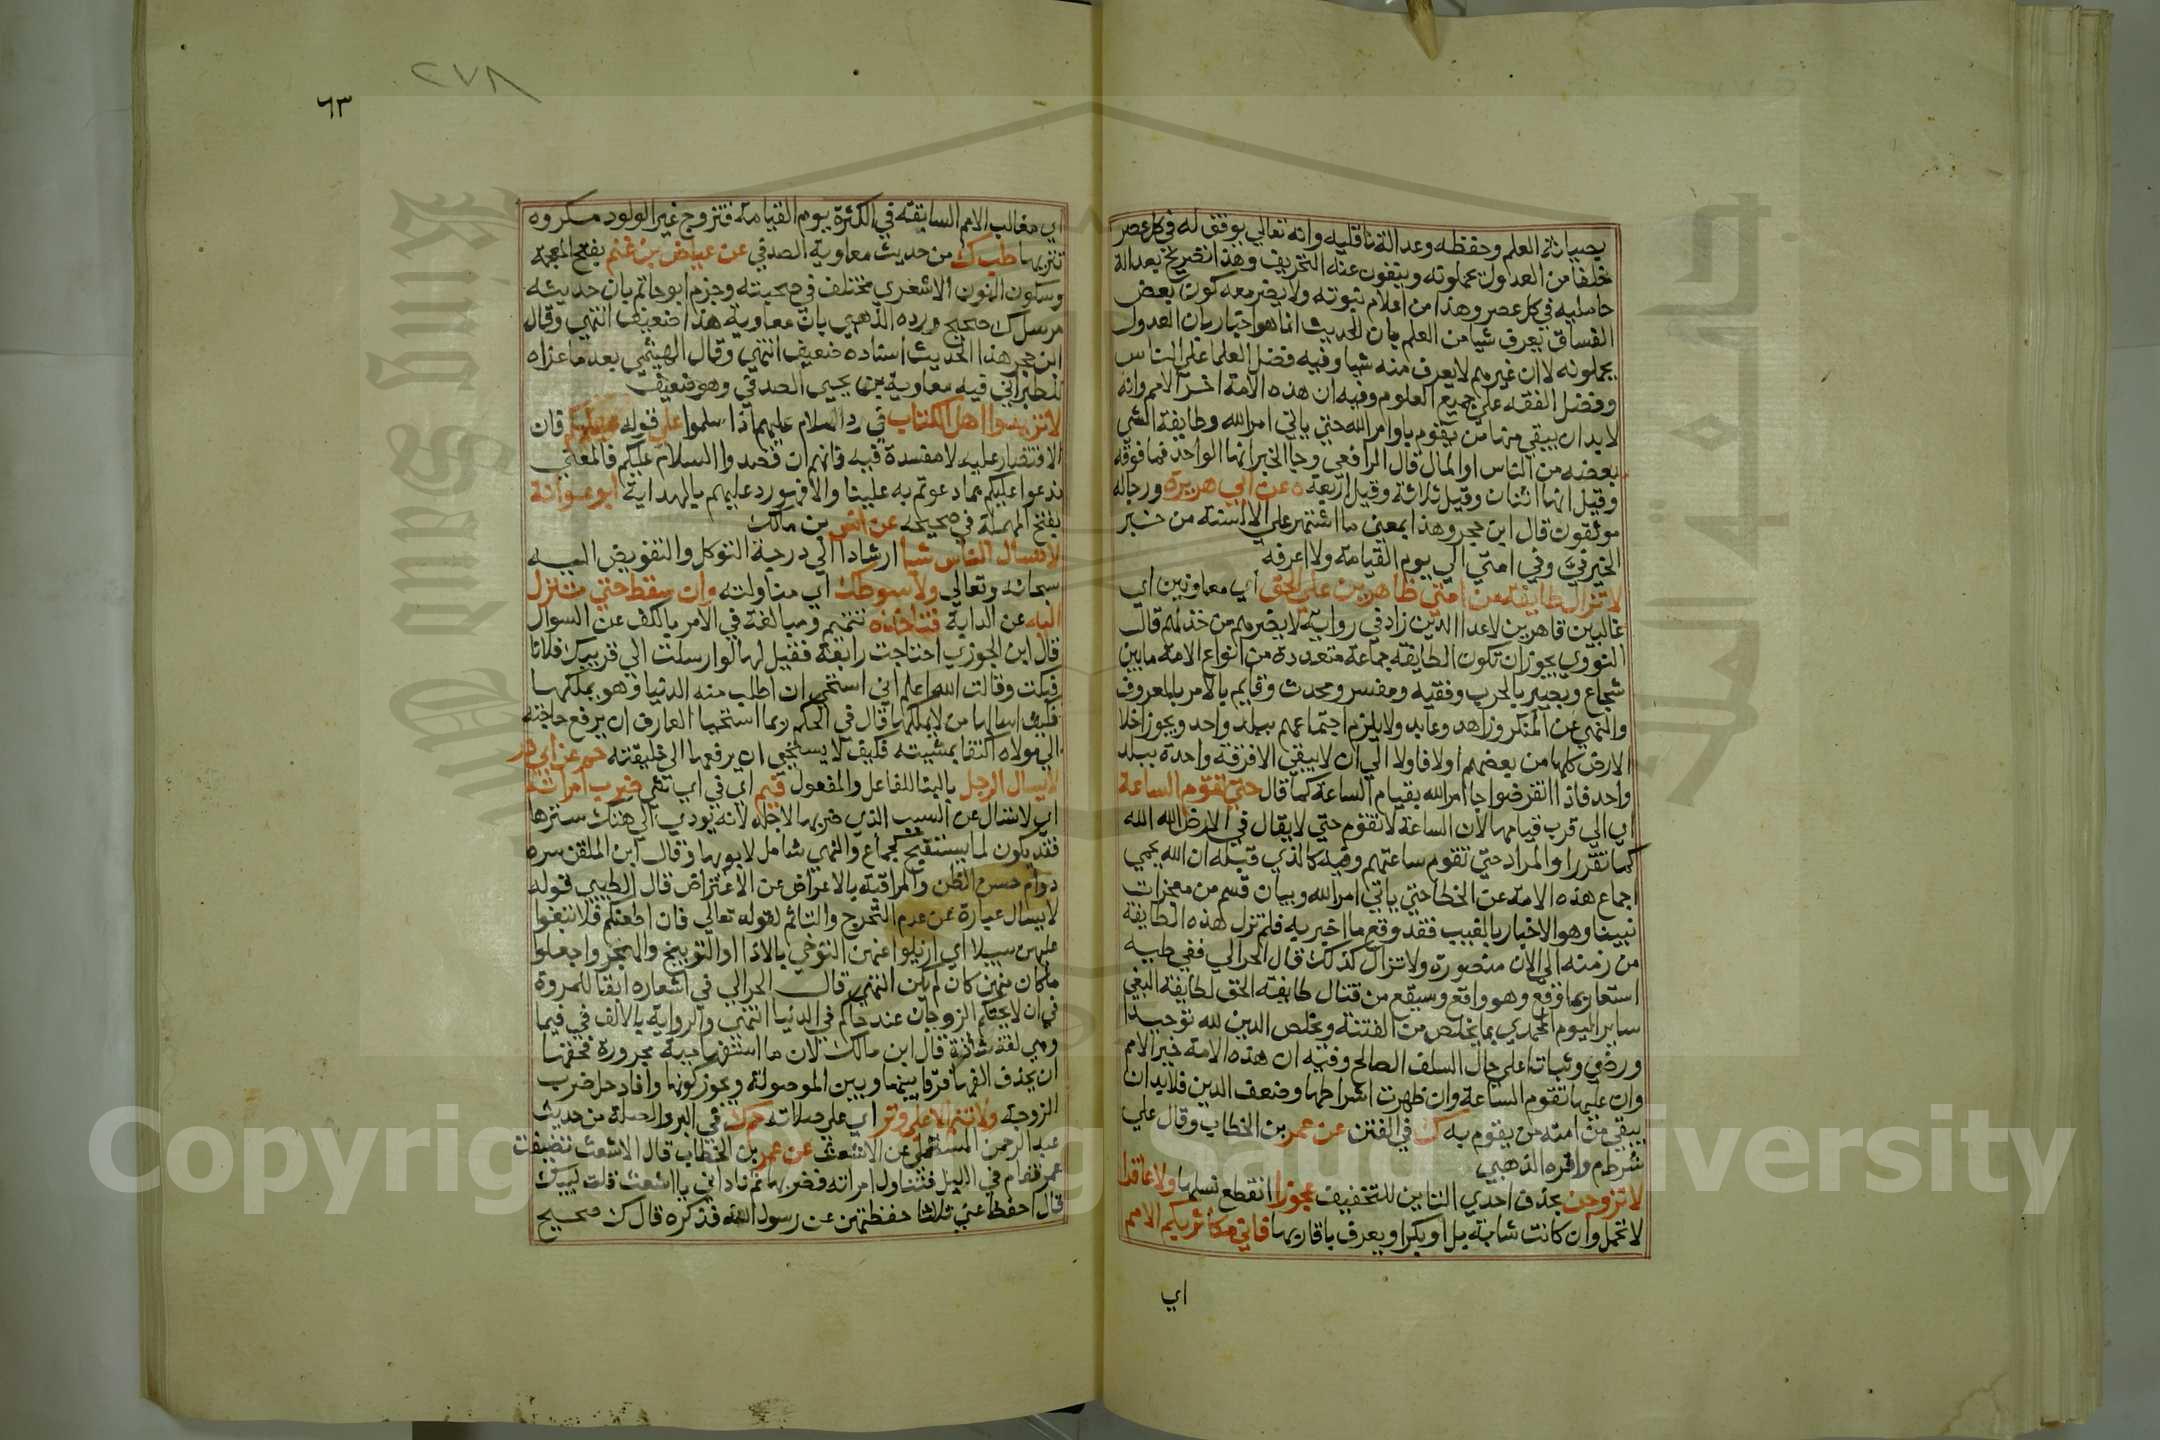 بصيانة العلم وحفظه وعدالة ناقليه وانه تعالي يوفق له في كل عصر
خلفا من العدول يحملونه وينفون عنه التحريف وهذا تصريح بعدالة
حامليه في كل عصر وهذا من اعلام نبوته ولا يضر معه كون بعض
الفساق يعرف شيا من العلم بان الحديث انما هو اخبار بان العدول
يحملونه لا ان غيرهم لا يعرف منه شيا وفيه فضل العلما علي الناس
وفضل الفقه علي جميع العلوم وفيه ان هذه الامة اخر الامم وانه
لابد ان يبقي منها من يقوم باوامر الله حتي ياتي امر الله وطايفة الشي
بعضه من الناس او المال قال الرافعي وجا الخبر انها الواحد فما فوقه
وقيل انها اثنان وقيل ثلاثة وقيل اربعة ه عن ابي هريرة ورجاله
موثقون قال ابن حجر وهذا بمعني ما اشتهر علي الالسنة من خبر
الخير في وفي امتي الي يوم القيامة ولا اعرفه
لا تزال طايفة من امتي ظاهرين علي الحق اي معاونين اي
غالبين قاهرين لاعدا الدين زاد في رواية لا يضرهم من خذلهم قال
النووي يجوز ان تكون الطايفة جماعة متعددة من انواع الامة ما بين
شجاع وبصير بالحرب وفقيه ومفسر ومحدث وقايم بالامر بالمعروف
والنهي عن المنكر وزاهد وعابد ولا يلزم اجتماعهم ببلد واحد ويجوز اخلا
الارض كلها من بعضهم اولا فاولا الي ان لا يبقي الا فرقة واحدة ببلد
واحد فاذا انقرضوا جا امر الله بقيام الساعة كما قال حتي تقوم الساعة
اي الي قرب قيامها لان الساعة لا تقوم حتي لا يقال في الارض الله الله
كما تقرر او المراد حتي تقوم ساعتهم وفيه كالذي قبله ان الله يحيي
اجماع هذه الامة عن الخطا حتي ياتي امر الله وبيان قسم من معجزات
نبينا وهو الاخبار بالغيب فقد وقع ما اخبر به فلم تزل هذه الطايفة
من زمنه الي الان منصورة ولا تزال كذلك قال الحرالي ففي طيه
استعار بما وقع وهو واقع وسيقع من قتال طايفة الحق لطايفة البغي
ساير اليوم المحمدي بما يخلص من الفتنة ويخلص الدين لله توحيدا
ورضي وثباتا علي حال السلف الصالح وفيه ان هذه الامة خير الامم
وان عليها تقوم الساعة وان ظهرت اشراطها وضعف الدين فلابد ان
يبقي من امته من يقوم به ك في الفتن عن عمر بن الخطاب وقال علي
شرطم واقره الذهبي
لا تزوجن بحذف احدي التاين للتخفيف عجوزا انقطع نسلها ولا عاقرا
لا تحمل وان كانت شابة بل او بكرا ويعرف باقاربها فاني مكاثر بكم الامم
اي
٢٧٨
٦٣
اي مغالب الامم السابقة في الكثرة يوم القيامة فتزوج غير الولود مكروه
تنزيها طب ك من حديث معاوية الصدفي عن عياض بن غنم بفتح المعجمة
وسكون النون الاشعري مختلف في صحبته وجزم ابو حاتم بان حديثه
مرسل ك صحيح ورده الذهبي بان معاوية هذا ضعيف انتهي وقال
ابن حجر هذا الحديث اسناده ضعيف انتهي وقال الهيثمي بعد ما عزاه
للطبراني فيه معاوية بن يحيي الصدفي وهو ضعيف
لا تزيدوا اهل الكتاب في رد السلام عليهم اذا سلموا علي قوله وعليكم فان
الاقتصار عليه لا مفسدة فيه فانهم ان قصدوا السلام عليكم فالمعني
ندعوا عليكم بما دعوتم به علينا والا فهو رد عليهم بالهداية ابو عوانة
بفتح المهملة في صحيحه عن انس بن مالك
لا تسال الناس شيا ارشادا الي درجة التوكل والتفويض اليه
سبحانه وتعالي ولا سوطك اي مناولته وان سقط حتي تنزل
اليه عن الداية فتاخذه تتميم ومبالغة في الامر بالكف عن السوال
قال ابن الجوزي احتاجت رابعة فقيل لها لو ارسلت الي قريبك فلانا
فبكت وقالت الله اعلم اني استحي ان اطلب منه الدنيا وهو يملكها
فكيف اسالها من لا يملكها قال في الحكم ربما استحيا العارف ان يرفع حاجته
الي مولاه اكتفا بمشيته فكيف لا يستحيي ان يرفعها الي خليقته حم عن ابي ذر
لا يسال الرجل بالبنا للفاعل والمفعول فيم اي في اي شي ضرب امراته
اي لا تسال عن السبب الذي ضربها لاجله لانه يودي الي هتك سترها
فقد يكون لما يستقبح كجماع والنهي شامل لابويها وقال ابن الملقن سره
دوام حسن الظن والمراقبة بالاعراض عن الاعتراض قال الطيبي قوله
لا يسال عبارة عن عدم التحرج والتاثم لقوله تعالي فان اطعنكم فلا تبغوا
عليهن سبيلا اي ازيلوا عنهن التوخي بالاذا او التوبيخ والهجر واجعلوا
ما كان منهن كان لم يكن انتهي قال الحرالي في اشعاره ابقا للمروة
في ان لا يحتكم الزوجان عند حاكم في الدنيا انتهي والرواية بالالف في فيما
وهي لغة شاذة قال ابن مالك لان ما استفهامية مجرورة فحقها
ان يحذف الفها فرقا بينها وبين الموصولة ويجوز كونها وافاد حل ضرب
الزوجة ولا تنم الا علي وتر اي علي صلاته حم ك في البر والصلة من حديث
عبد الرحمن المسلمي عن الاشعث عن عمر بن الخطاب قال الاشعث تضيفت
عمر فقام في الليل فتناول امراته فضربها ثم ناداني يا اشعث قلت لبيك
قال احفظ عني ثلاثا حفظتهن عن رسول الله فذكره قال ك صحيح
Copyright © King Saud University
King Saud University